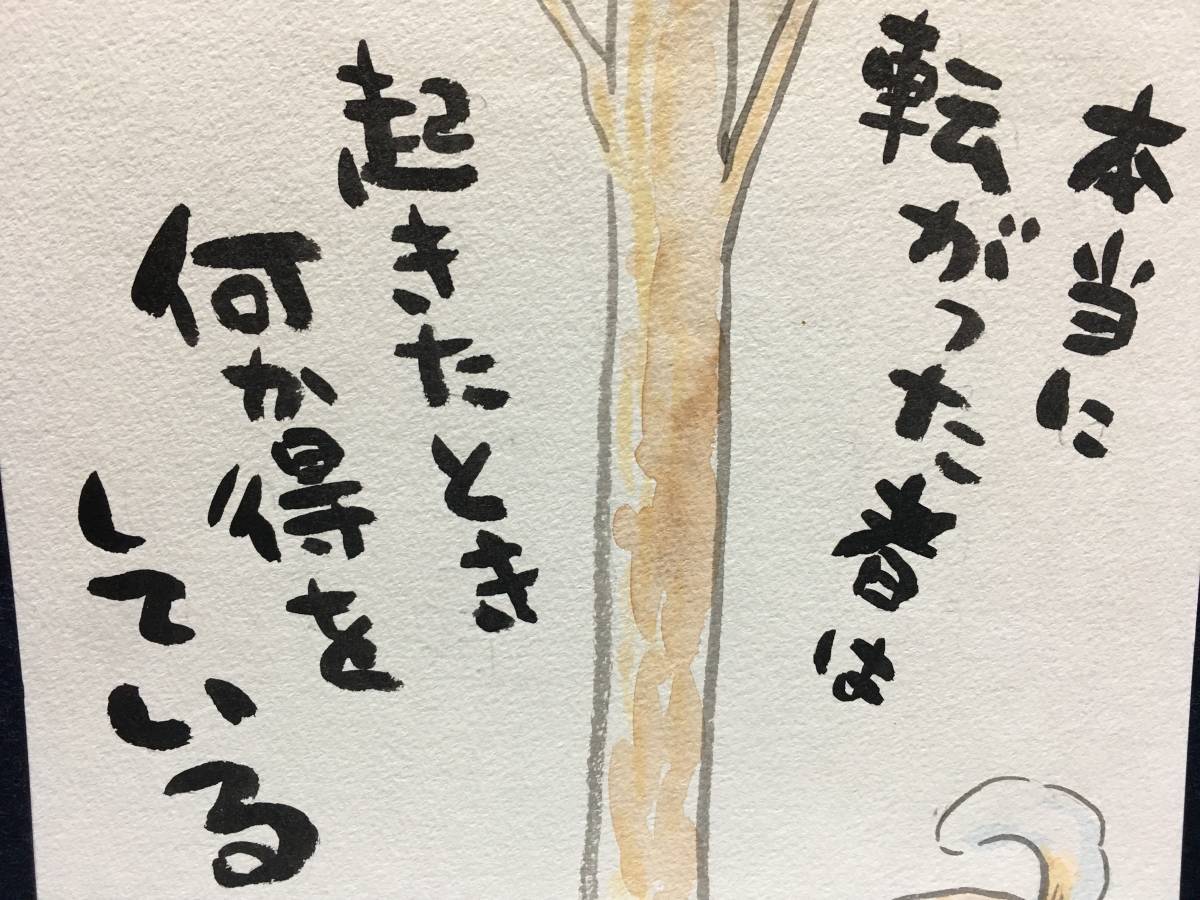 本当に
転がった者は
起きたとき
何か得を
している